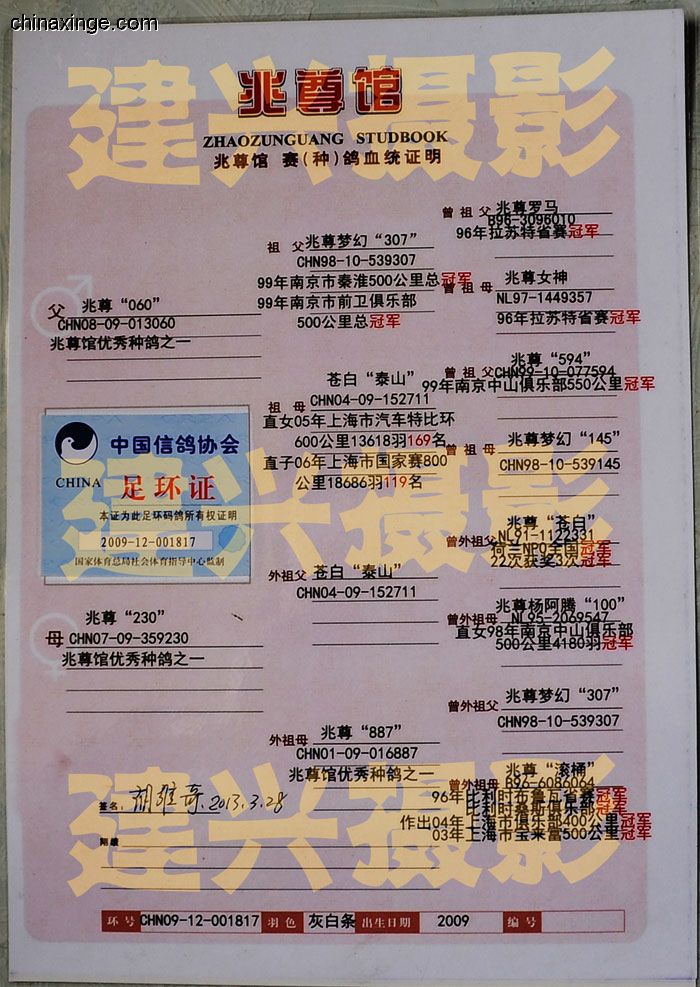 chinaxinge.com
兆尊馆
ZHAOZUNGUANG STUDBOOK
兆尊馆 赛(种)鸽血统证明
建兴摄影
父
兆尊“060”
CHN08-09-013060
兆尊馆优秀种鸽之一
祖 父
兆尊梦幻“307”
CHN98-10-539307
99年南京市秦淮500公里总冠军
99年南京市前卫俱乐部
500公里总冠军
曾 祖 父
兆尊罗马
B96-3096010
96年拉苏特省赛冠军
曾 祖 母
兆尊女神
NL97-1449357
96年拉苏特省赛冠军
祖 母
苍白“泰山”
CHN04-09-152711
直女05年上海市汽车特比环
600公里13618羽169名
直子06年上海市国家赛800
公里18686羽119名
曾 祖 父
兆尊“594”
CHN99-10-077594
99年南京中山俱乐部550公里冠军
曾 祖 母
兆尊梦幻“145”
CHN98-10-539145
中国信鸽协会
CHINA
足环证
本证为此足环码鸽所有权证明
2009-12-001817
国家体育总局社会体育指导中心监制
建兴摄影
母
兆尊“230”
CHN07-09-359230
兆尊馆优秀种鸽之一
外祖父
苍白“泰山”
CHN04-09-152711
曾外祖父
兆尊“苍白”
NL91-1122331
荷兰NPO全国冠军
22次获奖3次冠军
曾外祖母
兆尊杨阿腾“100”
NL95-2069547
直女98年南京中山俱乐部
500公里4180羽冠军
外祖母
兆尊“887”
CHN01-09-016887
兆尊馆优秀种鸽之一
曾外祖父
兆尊梦幻“307”
CHN98-10-539307
曾外祖母
兆尊“滚桶”
B96-6086064
96年比利时布鲁瓦省赛冠军
俱乐部冠军
作出04年上海市俱乐部400公里冠军
03年上海市宝莱富500公里冠军
签名:
胡维奇 2013.3.28
附雄
建兴摄影
环 号 CHN09-12-001817 羽 色 灰白条 出生日期 2009 编 号